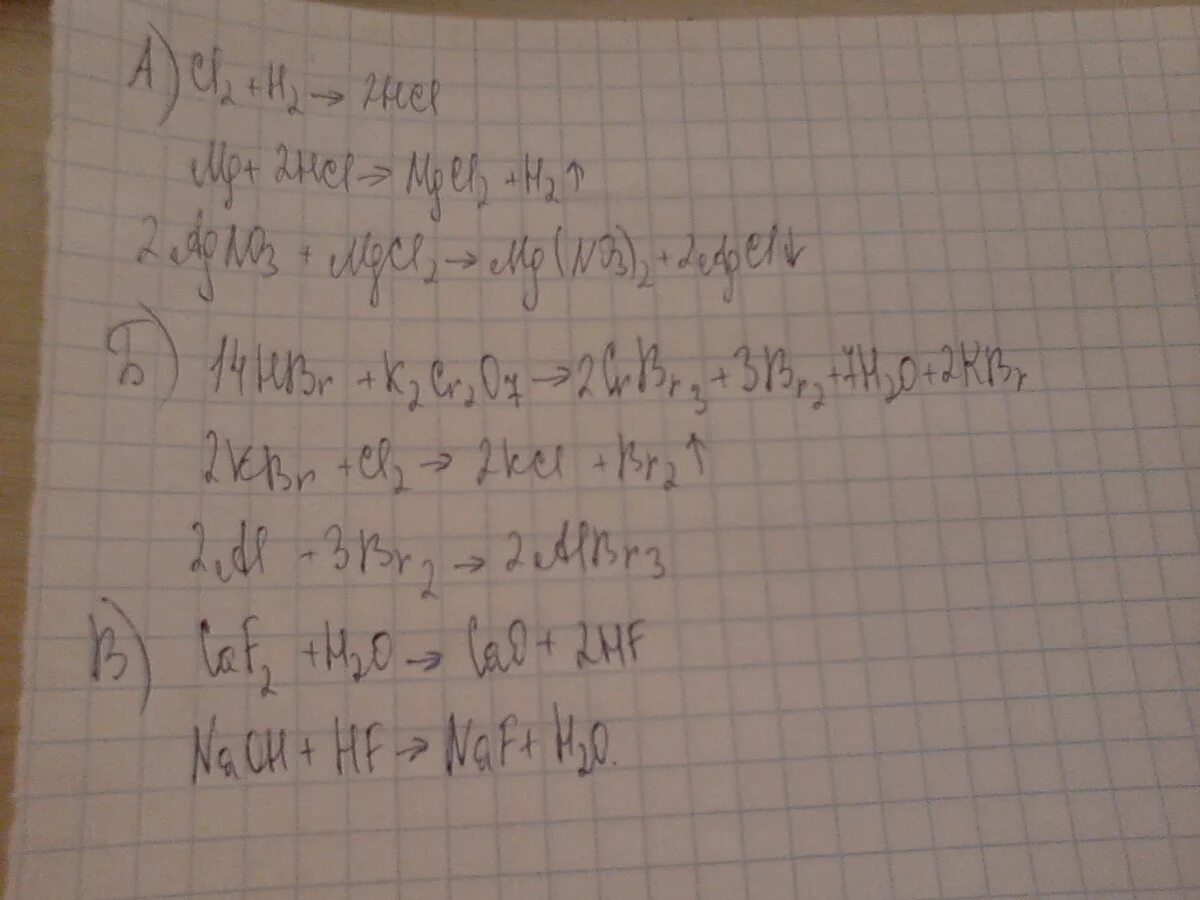 А) Cl₂ + H₂ → 2HCl
Mg + 2HCl → MgCl₂ + H₂↑
2AgNO₃ + MgCl₂ → Mg(NO₃)₂ + 2AgCl↓
Б) 14HBr + K₂Cr₂O₇ → 2CrBr₃ + 3Br₂ + 7H₂O + 2KBr
2KBr + Cl₂ → 2KCl + Br₂↑
2Al + 3Br₂ → 2AlBr₃
В) CaF₂ + H₂O → CaO + 2HF
NaOH + HF → NaF + H₂O.